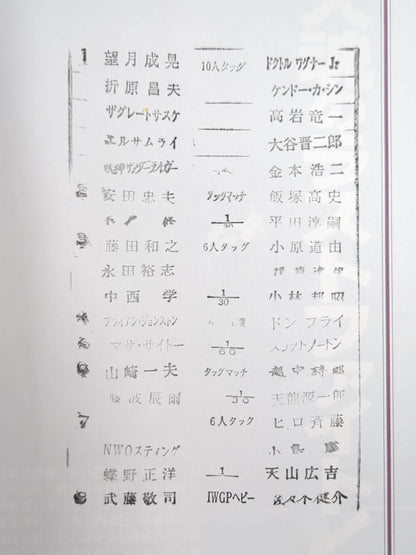 1 望月成晃 10人タッグ ドクトル ワグナー Jr
折原昌夫 ケンドー・カ・シン
ザグレートサスケ 高岩竜一
エルサムライ 大谷晋二郎
獣神サンダーライガー 金本浩二
2 安田忠夫 タッグマッチ 飯塚高史
1/30 平田淳嗣
3 藤田和之 6人タッグ 小原道由
永田裕志
中西学 1/30 小林邦昭
ブライアン・ジョンストン ドン フライ
マサ・サイトー 1/60 スコットノートン
山崎一夫 タッグマッチ 越中詩郎
藤波辰爾 1/30 天龍源一郎
7 6人タック ヒロ斉藤
NWOスティング
蝶野正洋 1 天山広吉
8 武藤敬司 IWGPヘビー 佐々木健介